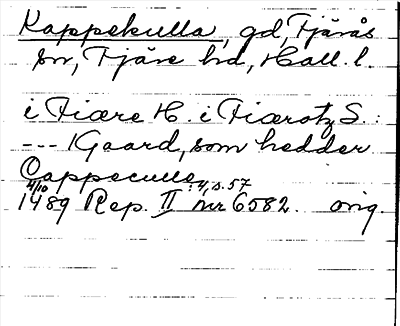 Kappekulla, gd, Fjärås
sn, Fjäre hd, Hall. l.
i Fiære H. i Fiærotz S. :
--- 1 Gaard, som hedder
Cappeculle : 4, s. 57
4/10
1489 Rep. II nr 6582. orig.